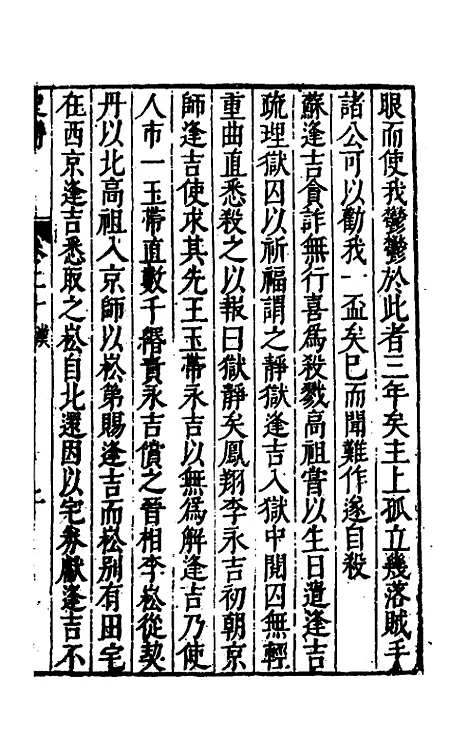 眼而使我鬱鬱於此者三年矣主上孤立幾落賊手
諸公可以勸我一盃矣已而聞難作遂自殺
蘇逢吉貪詐無行喜為殺戮高祖嘗以生日遣逢吉
疏理獄囚以祈福謂之靜獄逢吉入獄中閱囚無輕
重曲直悉殺之以報曰獄靜矣鳳翔李永吉初朝京
師逢吉使求其先王玉帶永吉以無為解逢吉乃使
人市一玉帶直數千緡責永吉償之晉相李崧從契
丹以北高祖入京師以崧第賜逢吉而崧別有田宅
在西京逢吉悉取之崧自北還因以宅券獻逢吉不
卷二十